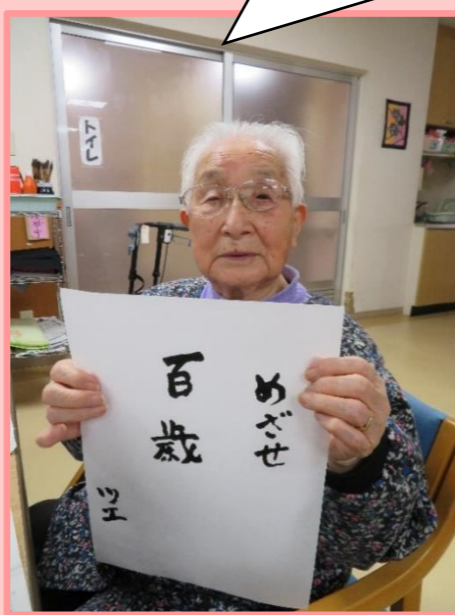 トイレ
めざせ
百歳
ツエ